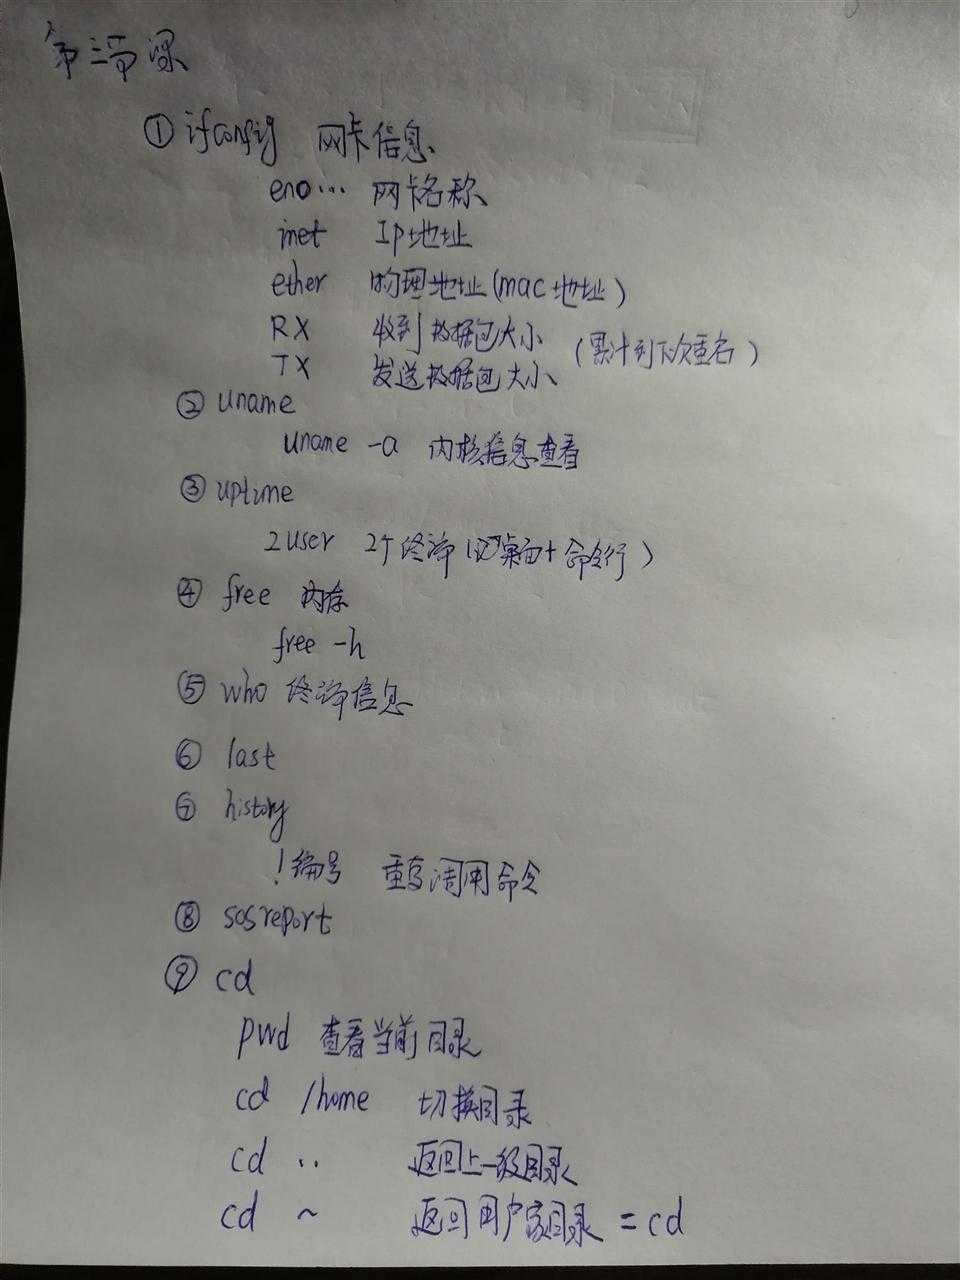 第三节课
① ifconfig 网卡信息
eno... 网卡名称
inet Ip地址
ether 物理地址(mac地址)
RX 收到数据包大小
(累计到下次重启)
TX 发送数据包大小
② uname
uname -a 内核信息查看
③ uptime
2user 2个终端(桌面+命令行)
④ free 内存
free -h
⑤ who 终端信息
⑥ last
⑦ history
!编号 重复调用命令
⑧ sosreport
⑨ cd
pwd 查看当前目录
cd /home 切换目录
cd .. 返回上一级目录
cd ~ 返回用户家目录 = cd